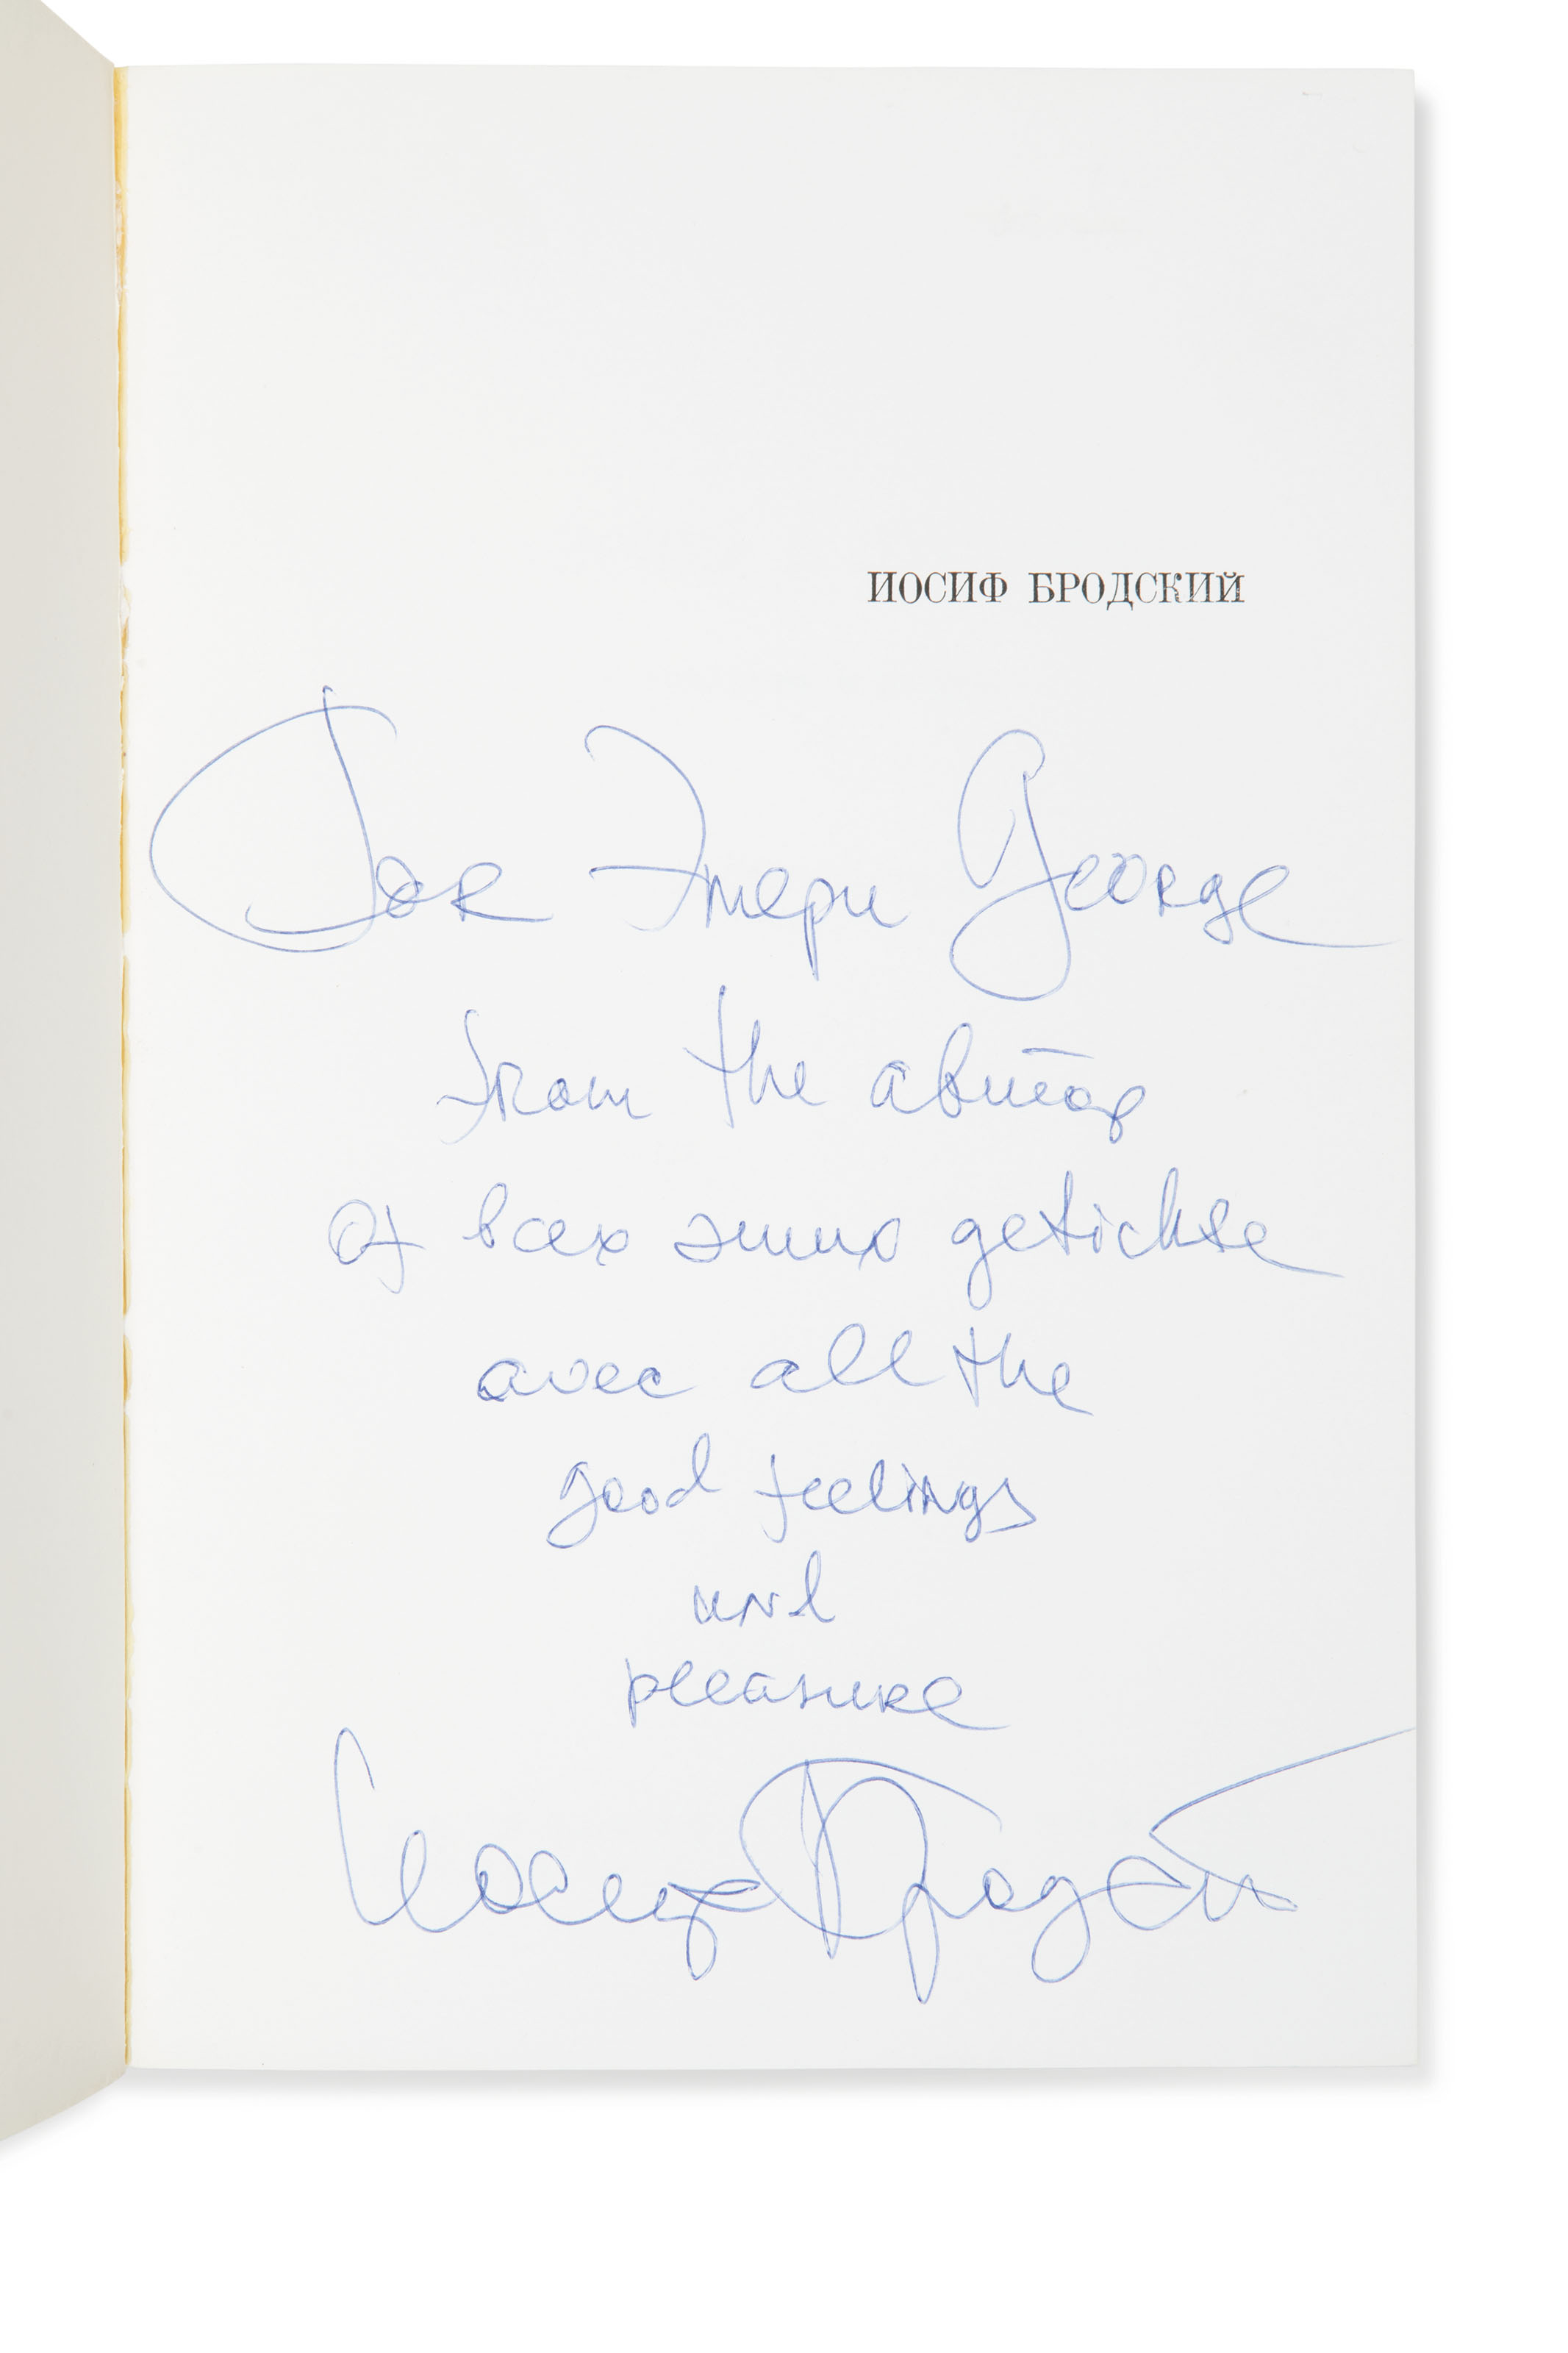 ИОСИФ БРОДСКИЙ
For Этери George
from the автор
of всех этих getichte
avec all the
good feelings
und
pleasure
Иосиф Бродский